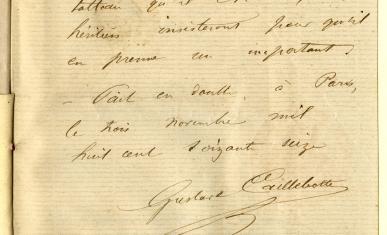 tableau qu'il
héritiers insisteront pour qu'il
en prenne un important.
Fait en double, à Paris,
le trois novembre mil
huit cent soixante seize
Gustave Caillebotte